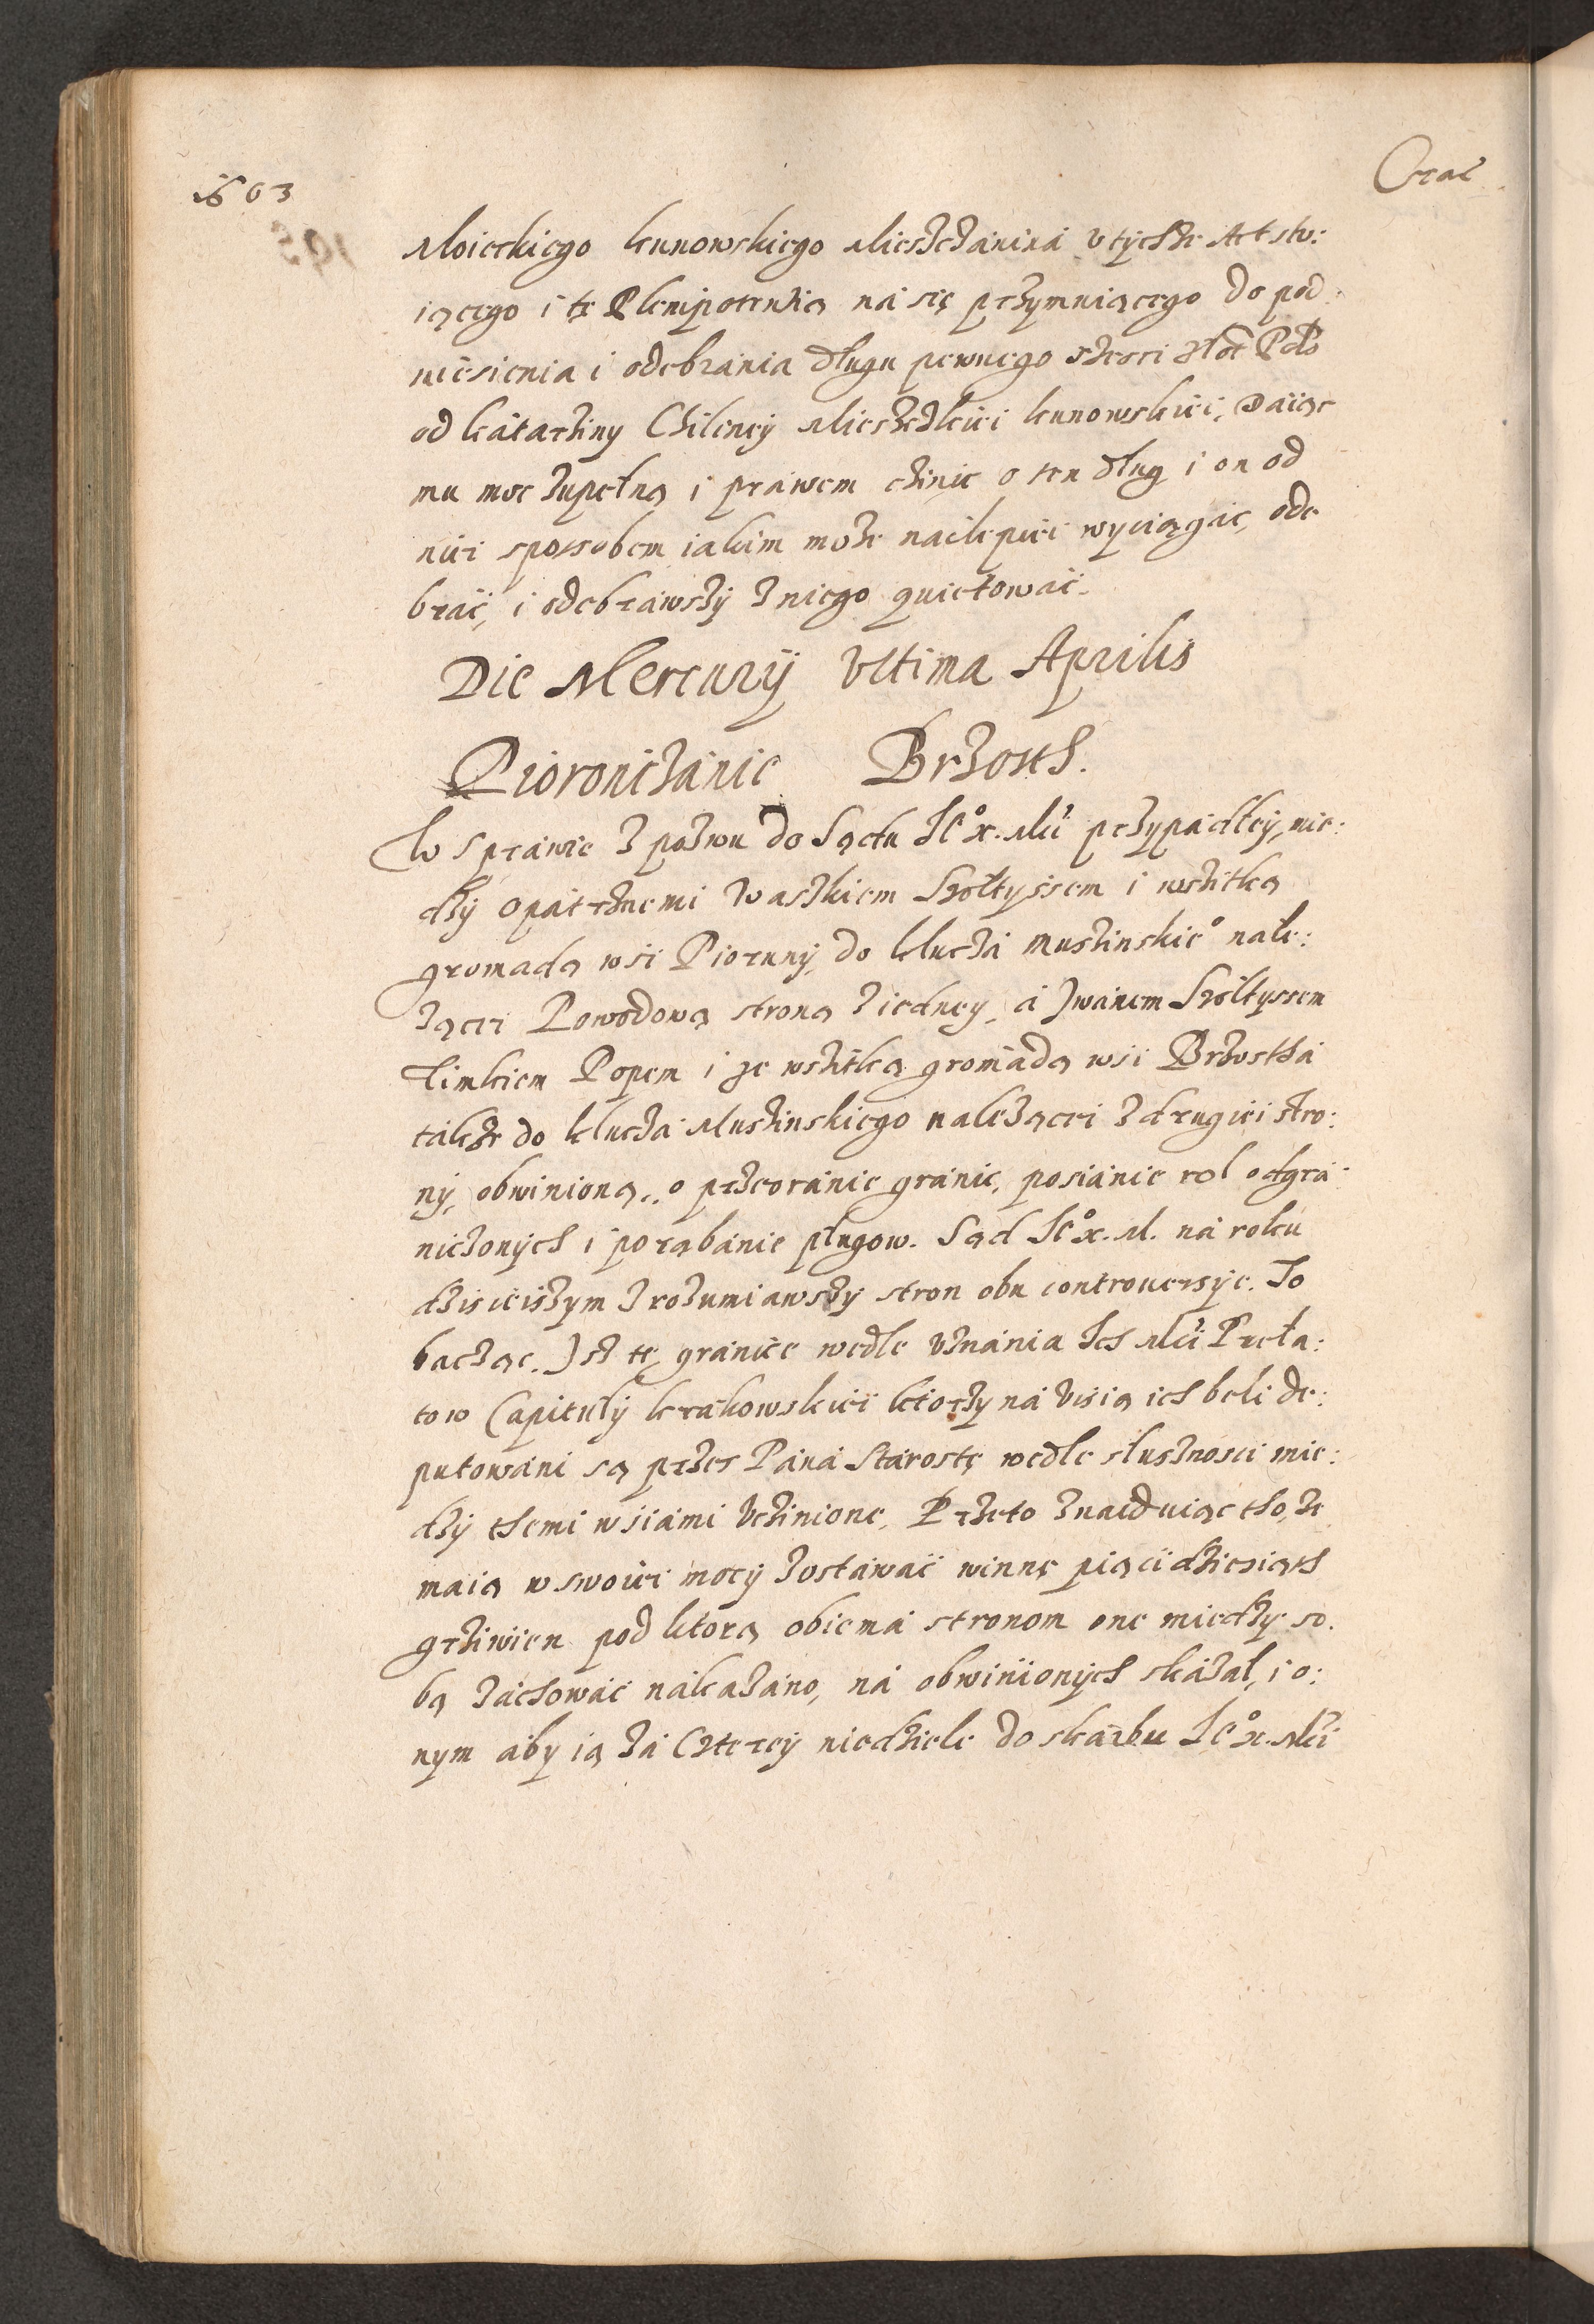 1603
Crac
Moieckiego kunowskiego Mieszczanina v tychże Act sto:
iącego i tę Plenipotentią na się przymuiącego do pod:
niesienia i odebrania długu pewnego sześci złot Pols
od Katarziny Chilency Mieszczki kunowskiei, Daiąc
mu moc zupełną i prawem czinic o ten dług i on od
niei sposobem iakim może nailepiei wyciągać, ode
brać, i odebrawszy z niego quictować.
Die Mercurÿ Vltima Aprilis
Pioronczanie Brzosth.
W sprawie z pozwu do Sądu Je° x. Mci przypadłey, mie:
dzy opatrznemi Waszkiem Szołtyssem i wszitką
gromadą wsi Pioruny, do klucza muszinskie° nale:
zącei Powodową stroną z iedney, a Iwanem Szołtyssem
Timkiem Popem i ze wszitką gromadą wsi Brzostha
także do klucza Muszinskiego należącei z drugiei stro:
ny, obwinioną, o przeoranie granic, posianie rol odgra:
niczonych i porąbanie pługow. Sąd Je° x. M. na roku
dzisieiszym zrozumiawszy stron obu controuersye. To
bacząc. Isz te granice wedle vznania Ich Mci Præła:
tow Capituły krakowskiei ktorzy na Visią ich beli de:
putowani są przez Pana Starostę wedle słusznosci mie:
dzy themi wsiami vczinione, Przeto znaiduiąc tho, że
maią w swoiei mocy zostawać winnę piącidziesiąth
grziwien pod ktorą obiema stronom one miedzy so:
bą zachować nakazano, na obwinionych skazał, i o:
nym aby ią za Cztery niedziele do skarbu Je° x. Mci